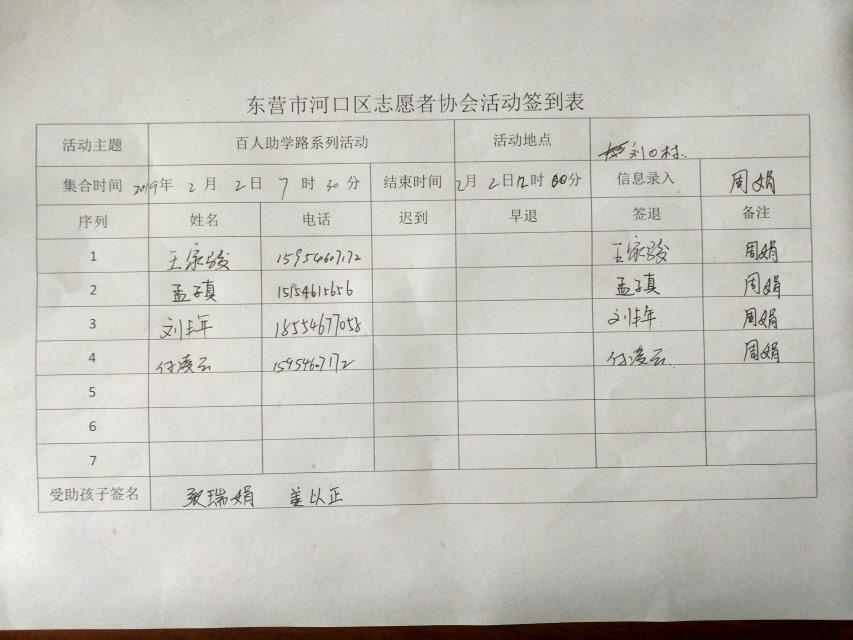 东营市河口区志愿者协会活动签到表
活动主题 百人助学路系列活动 活动地点 刘口村
集合时间 2019年 2月 2日 7时 30分 结束时间 2月 2日12时 00分 信息录入 周娟
序列 姓名 电话 迟到 早退 签退 备注
1 王家骏 15954607172 王家骏 周娟
2 孟子真 15154615656 孟子真 周娟
3 刘丰年 18554677058 刘丰年 周娟
4 付凌云 15954607172 付凌云 周娟
5
6
7
受助孩子签名 瑞娟 姜以正